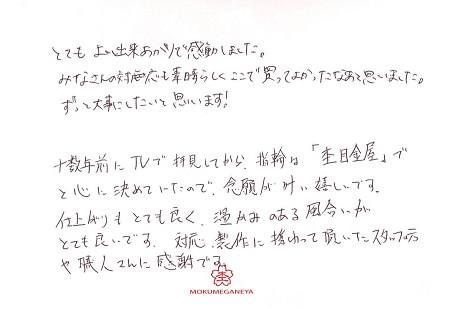 とても よい出来あがりで感動しました。
みなさんの対応も素晴らしくここで買ってよかったなあと思いました。
ずっと大事にしたいと思います!
十数年前に TVで拝見してから、指輪は「杢目金屋」で
と心に決めていたので、念願が叶い嬉しいです。
仕上がりもとても良く、温かみのある風合いが
とても良いです。対応、製作に携わって頂いたスタッフの方
や職人さんに感謝です。
MOKUMEGANEYA